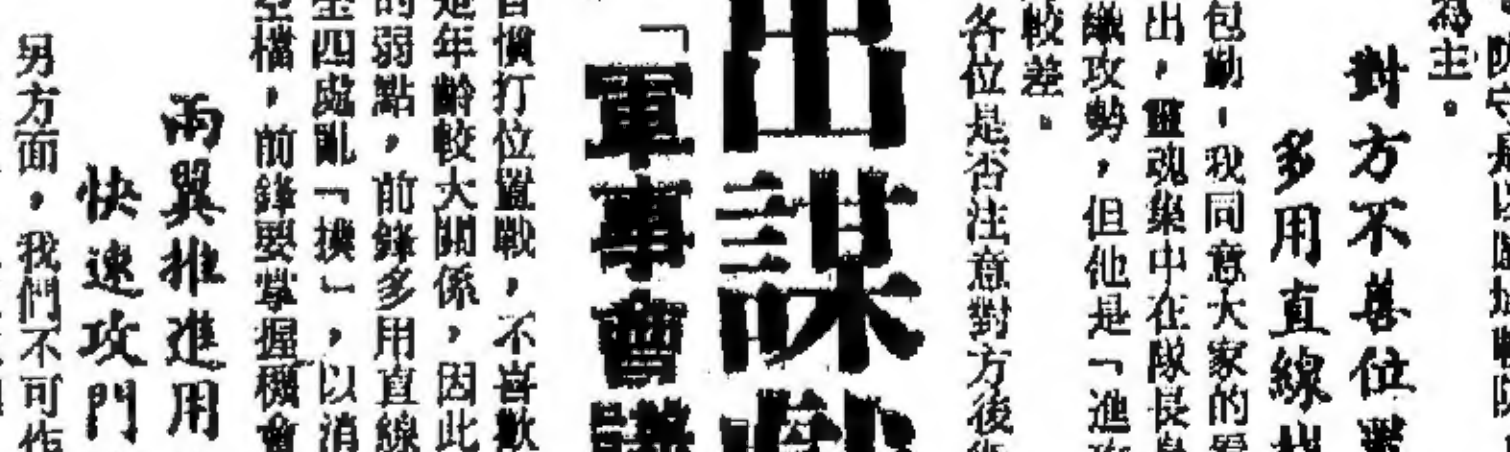 防守是以
為主。
對方不善位置
多用直線
包動,我同意大家的看
出,靈魂集中在隊長身
織攻勢,但他是「進攻
較差。
各位是否注意對方後衛
出謀
「軍事會議
習慣打位置戰,不喜歡
是年齡較大關係,因此
的弱點,前鋒多用直線
至四處亂「擠」,以消
空檔,前鋒要掌握機會
兩翼推進用
快速攻門
另方面,我們不可作